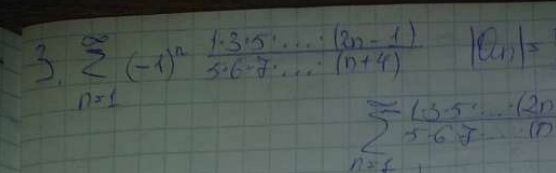 3. ∞ Σ n=1 (-1)^n 1·3·5·...·(2n-1) / 5·6·7·...·(n+4) |an|=
∞ Σ n=1 1·3·5·...·(2n / 5·6·7·...·(n